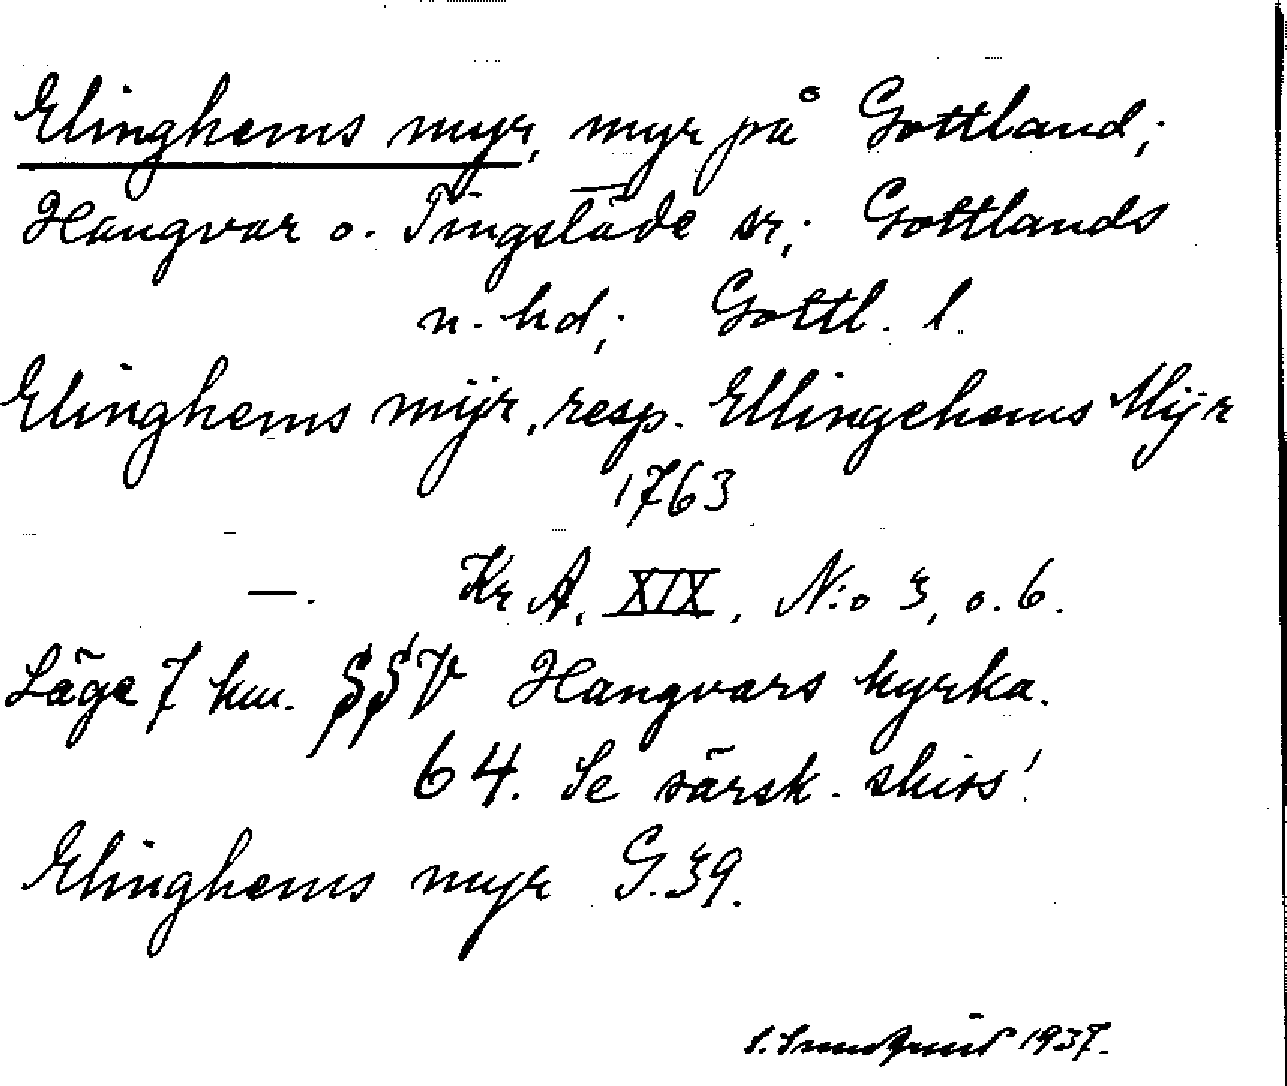 Elinghems myr, myr på Gottland;
Hangvar o. Tingstäde sr,; Gottlands
n. hd,; Gottl. l.
Elinghems mÿr, resp. Ellingehems Mÿr
1763
—. Kr A, XIX, N:o 3, o. 6.
Läge 7 km. SSV Hangvars kyrka.
64. Se särsk. skiss!
Elinghems myr G. 39.
S. 1937.